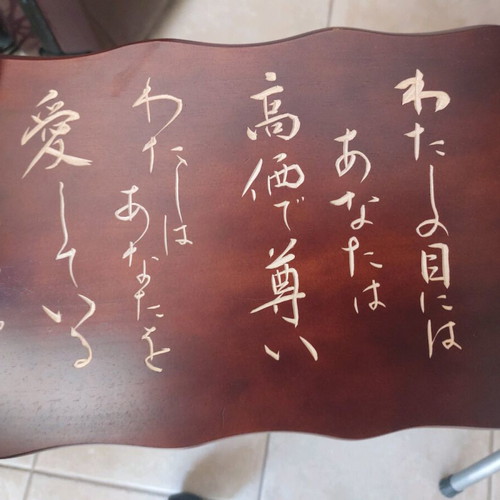 わたしの目には
あなたは
高価で尊い
わたしは
あなたを
愛している